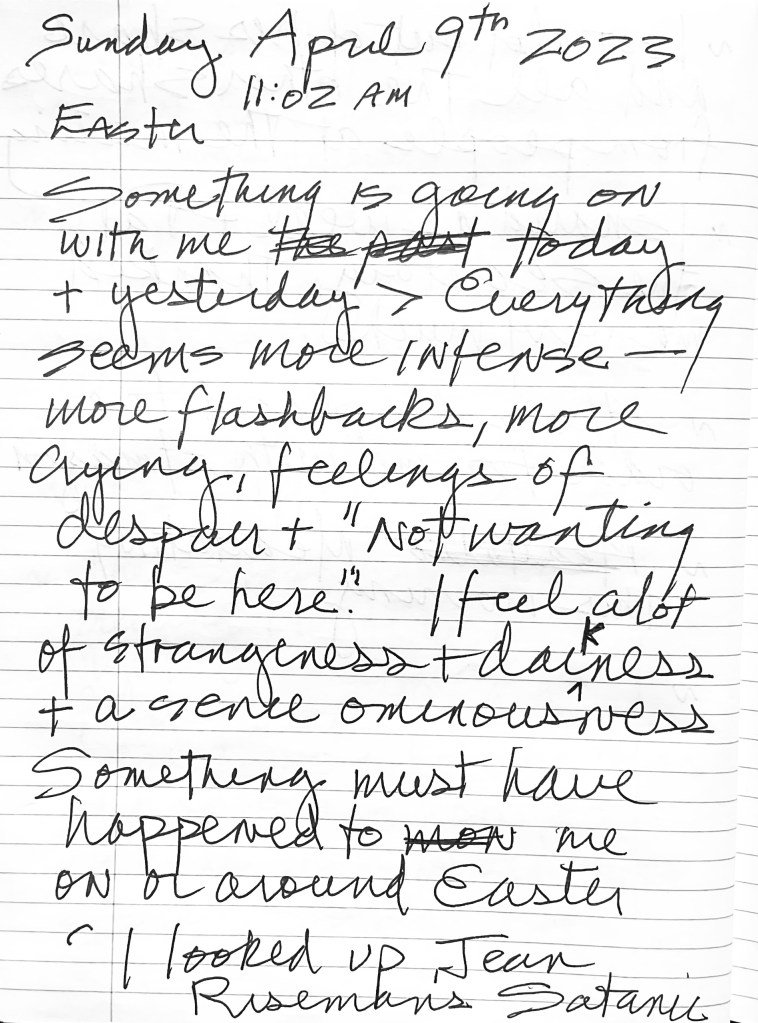 Sunday April 9th 2023
11:02 AM
Easter
Something is going on
with me the past today
+ yesterday > Everything
seems more intense —
more flashbacks, more
crying, feelings of
despair + "Not wanting
to be here". I feel alot
of strangeness + darkness
+ a sence ominousness
Something must have
happened to me
on or around Easter
I looked up Jean
Riseman's Satanic